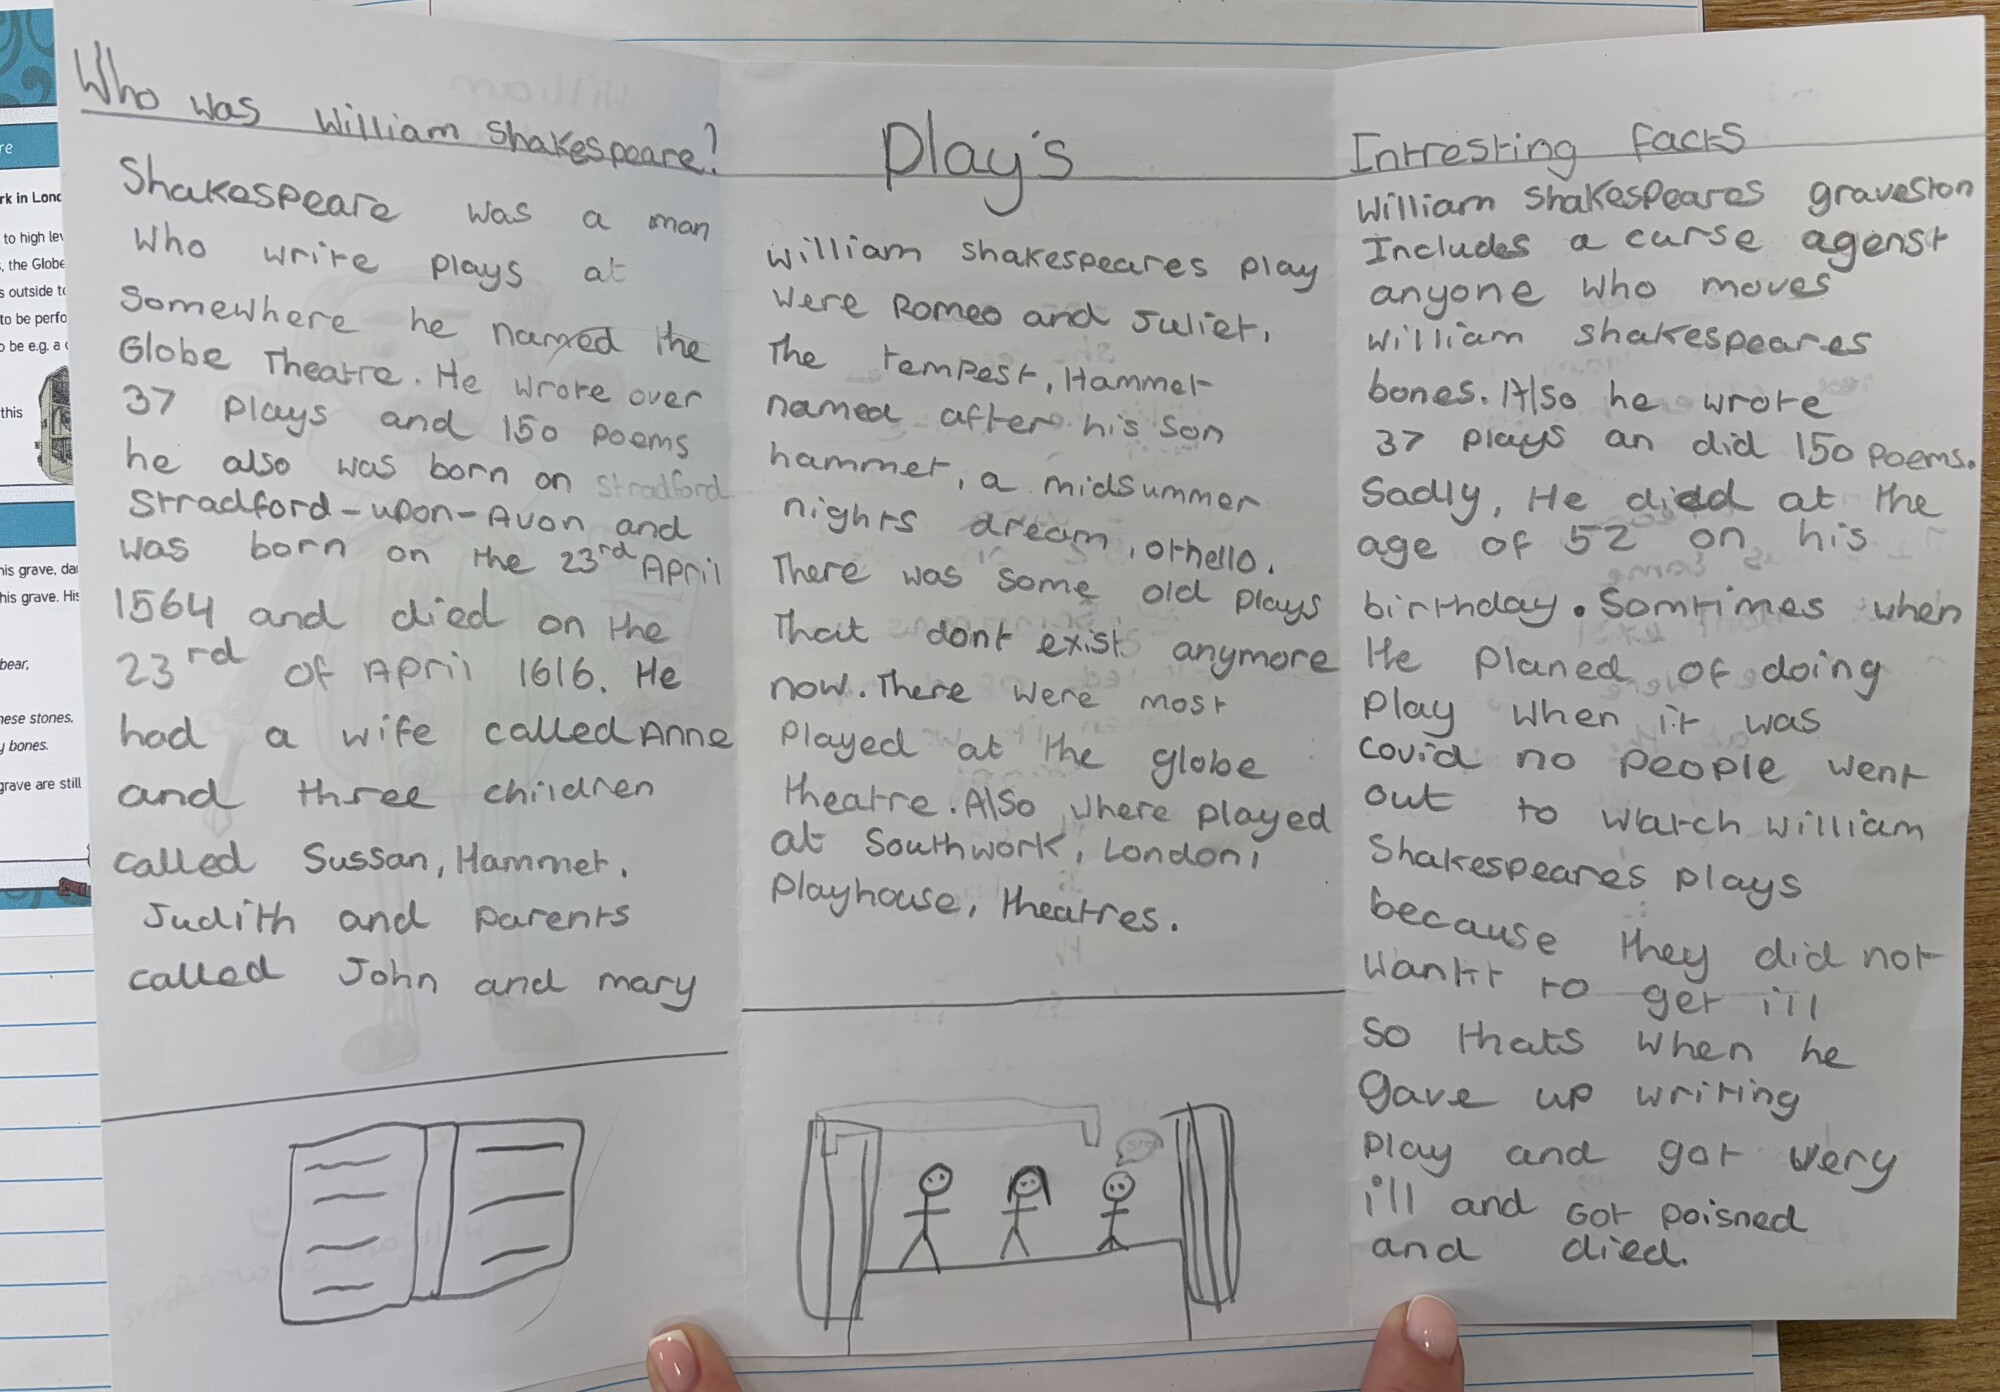 Who was William Shakespeare?
Shakespeare was a man
who write plays at
somewhere he named the
Globe Theatre. He wrote over
37 plays and 150 poems
he also was born on stradford
Stradford-upon-Avon and
was born on the 23rd April
1564 and died on the
23rd of April 1616. He
had a wife called Anne
and three children
called Sussan, Hammet,
Judith and parents
called John and mary
Play's
William Shakespeares play
were Romeo and Juliet,
The tempest, Hammet
named after his son
hammet, a midsummer
nights dream, othello.
There was some old plays
That dont exist anymore
now. There were most
played at the globe
theatre. Also where played
at Southwork, London,
playhouse, theatres.
Intresting facts
William Shakespeares graveston
Includes a curse agenst
anyone who moves
william shakespeares
bones. Also he wrote
37 plays an did 150 poems.
Sadly, He died at the
age of 52 on his
birthday. Somtimes when
He planed of doing
play when it was
covid no people went
out to watch william
Shakespeares plays
because they did not
wantt to get ill
so thats when he
gave up writing
play and got very
ill and got poisned
and died.
re
rk in Lond
to high lev
, the Globe
s outside to
to be perfo
o be e.g. a
this
his grave, da
his grave. His
bear,
hese stones,
y bones.
grave are still